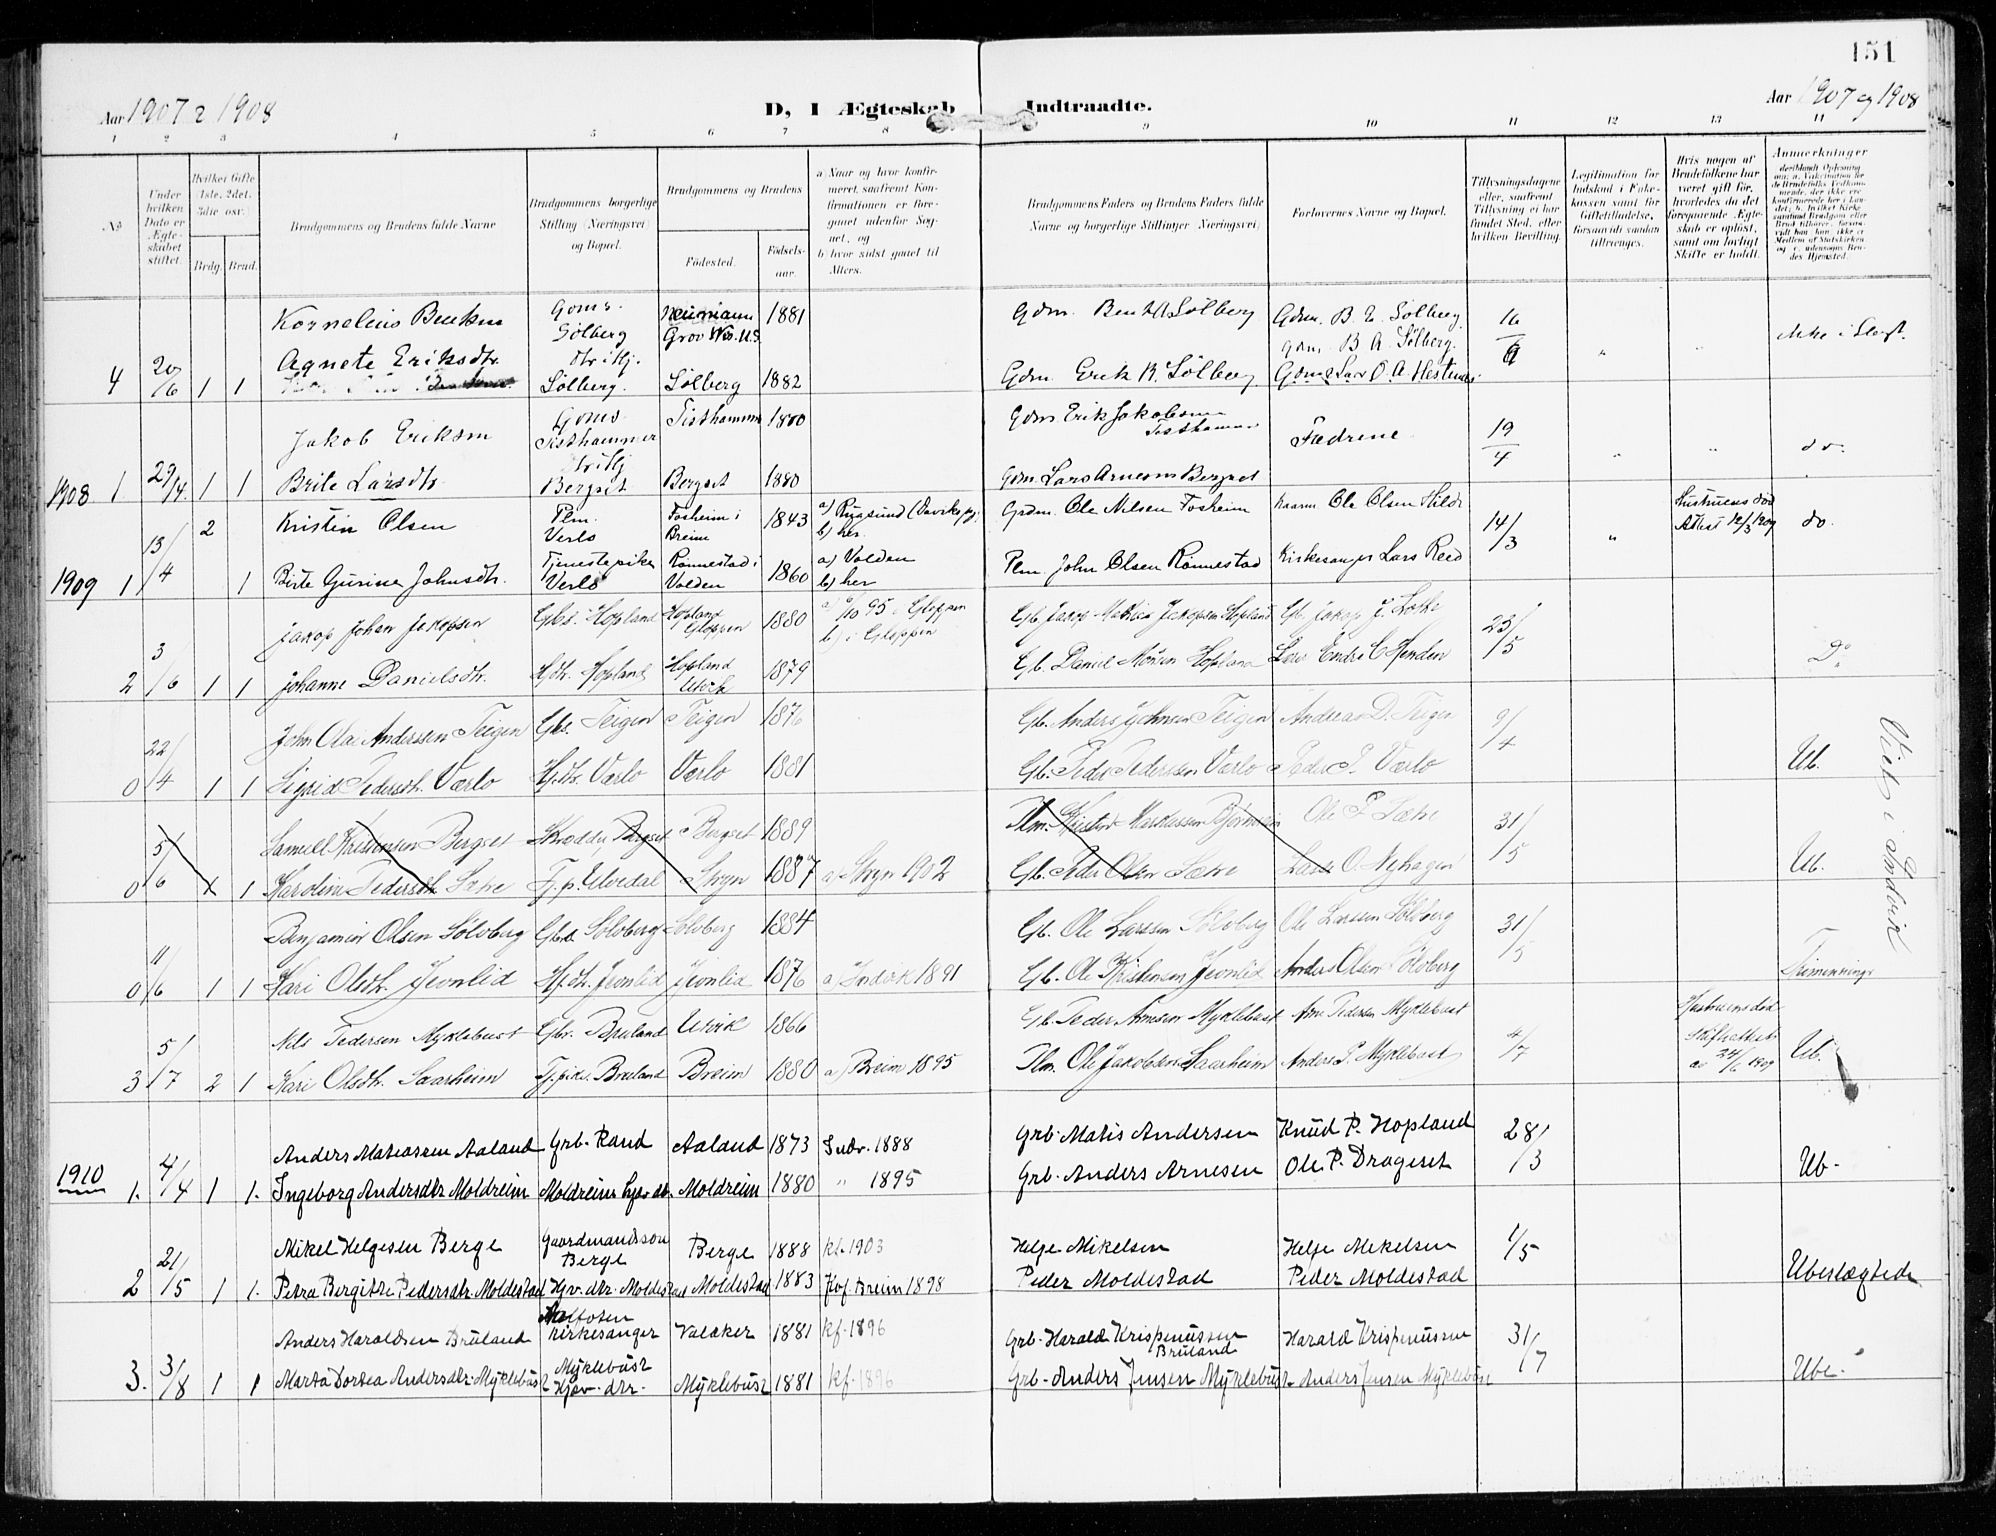 151
Aar 1907 & 1908
D, I Ægteskab Indtraadte.
Aar 1907 og 1908
1 2 3 4 5 6 7 8 9 10 11 12 13 14
No
Under hvilken Dato er Ægteskabet stiftet.
Hvilket Gifte (1ste, 2det, 3die osv.)
Brdg. Brud.
Brudgommens og Brudens fulde Navne
Brudgommens borgerlige Stilling (Næringsvei) og Bopæl.
Brudgommens og Brudens
Fødested.
Fødselsaar.
a) Naar og hvor konfirmeret, saafremt Konfirmationen er foregaaet udenfor Sognet, og
b) hvor sidst gaaet til Alters.
Brudgommens Faders og Brudens Faders fulde Navne og borgerlige Stillinger (Næringsvei)
Forlovernes Navne og Bopæl.
Tillysningsdagene eller, saafremt Tillysning ei har fundet Sted, efter hvilken Bevilling.
Legitimation for Indskud i Enkekassen samt for Giftetilladelse, forsaavidt saadan tiltrænges.
Hvis nogen af Brudefolkene har været gift før, hvorledes da det foregaaende Ægteskab er opløst, samt om lovligt Skifte er holdt.
Anmerkninger
Kornelius Bentsen Gdms. Sølberg 1881 Gdm. Bent A Sølberg Gdm. B. E. Sølberg 16/6
Gdm. B A. Sølberg
4 20/6 1 1 Agnete Eriksdtr. Sølberg. Sølberg 1882 Gdm. Erik B. Sølberg ikke i Slegt.
Jakob Eriksen Gdms. Tisthammer Tisthammer 1880 Gdm Erik Jakobsen Tisthammer Fædrene 19/4 do.
1908 1 29/4 1 1 Brite Larsdtr Bergset Bergset 1880 Gdm Lars Arnesen Bergset
Kristen Olsen Plm. Verlo Fosheim i Breim 1843 a) Rugsund (Davikspg.) b) her. Grdm. Ole Nilsen Fosheim Ole Olsen Hilde 14/3 Hustruens død Attest 12/3 1909 do.
1909 1 13/4 2 1 Birte Gurine Johnsdtr. Tjenestepike Verlo Rønnestad i Volden 1860 a) Volden b) her Plm. John Olsen Rønnestad Kirkesanger Lars Reed
Jakop Johan Jakopsen Gbs. Hopland Hopland Gloppen 1880 95 i Gloppen b) i Gloppen Gb. Jakop Matias Jakopsen Hopland Gb. Jakop J. Lote 23/5
2 3/6 1 1 Johanne Danielsdtr. Hdtr. Hopland Hopland Utvik 1879 Gb. Daniel Monsen Hopland Lars Endre C Henden Do
John Olai Anderssen Teigen Gbs. Teigen Teigen 1876 Gb. Anders Johnsen Teigen Andreas D. Teigen 9/4
0 22/4 1 1 Sigrid Pedersdtr. Værlo Hdtr. Værlo Værlo 1881 Gb. Peder Pederssen Værlo Peder P. Værlo Ub.
Samuel Kristensen Bergset Skrædder Bergset Bergset 1889 Plm. Kristen Markussen Ole P Sætre 31/5
0 5/6 1 1 Karoline Pedersdtr. Sætre Tj.p. Ulvedal Stryn 1887 a) Stryn 1902 Gb. Peder Olsen Sætre Lasse O. Nyhagen Ub.
Benjamin Olsen Sölvberg Gbs. Solvberg Solvberg 1884 Gb. Ole Larssen Sölvberg Ole Larssen Sölvberg 31/5
0 11/6 1 1 Kari Olsdtr. Jevnlid Hdtr. Jevnlid Jevnlid 1876 a) Indvik 1891 Gb. Ole Kristensen Jevnlid Anders Olsen Sölvberg Tremenninge
Nils Pedersen Myklebust Gbr. Bruland Utvik 1866 Gb. Peder Arnesen Myklebust Arne Pedersen Myklebust 4/7 Hustruens død Skifteattest av 24/6 1909
3 5/7 2 1 Kari Olsdtr. Saarheim Tj.pike Bruland Breim 1880 a) Breim 1895 Plm. Ole Jakobsen Saarheim Anders P. Myklebust Ub.
Viet i Indvik
Anders Matiassen Aaland Grb. Rand Aaland 1873 Indv. 1888 Grb. Matis Andersen Knud P. Hopland 28/3
1910 1. 4/4 1 1. Ingeborg Andersdtr Moldreim Moldreim Moldreim 1880 " 1895 Grb. Anders Arnesen Ole P. Drageset Ub.
Mikel Helgesen Berge Gaardmandssøn Berge Berge 1888 kf. 1903 Helge Mikelsen Helge Mikelsen 1/5
2 21/5 1 1. Petra Bergitte Pedersdtr. Moldestad Hjv. dtr. Moldestad Moldestad 1883 Kof. Breim 1898 Peder Moldestad Peder Moldestad Ubeslægtede
Anders Haraldsen Bruland Kirkesanger Valaker 1881 kf. 1896 Grb. Harald Krispinussen Bruland Harald Krispinussen 31/7
3. 3/8 1 1 Marta Dortea Andersdtr. Myklebust Myklebust Hjv. dtr. Myklebust 1881 kf. 1896 Grb. Anders Jensen Myklebust Anders Jensen Myklebust Ube.